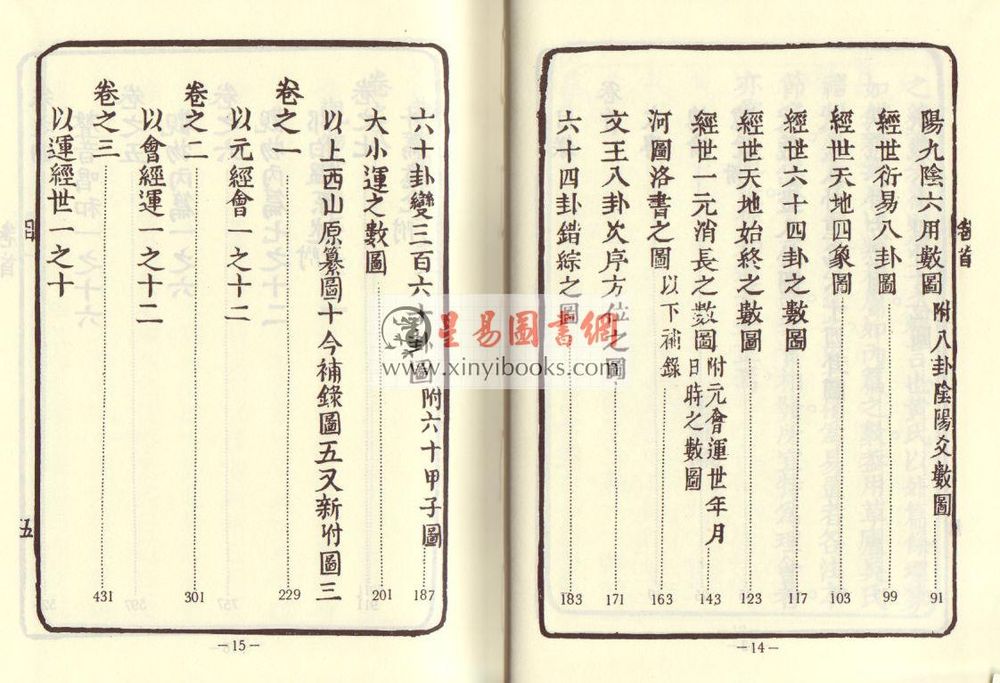 卷首
陽九陰六用數圖 附八卦陰陽爻數圖 91
經世衍易八卦圖 99
經世天地四象圖 103
經世六十四卦之數圖 117
經世天地始終之數圖 123
經世一元消長之數圖 附元會運世年月日時之數圖 143
河圖洛書之圖 以下補錄 163
文王八卦次序方位之圖 171
六十四卦錯綜之圖 183
-14-
六十卦變三百六十卦圖 附六十甲子圖 187
大小運之數圖 201
以上西山原纂圖十今補錄圖五又新附圖三
卷之一 229
以元經會一之十二
卷之二 301
以會經運一之十二
卷之三 431
以運經世一之十
目
五
-15-
星易圖書網
www.xinyibooks.com